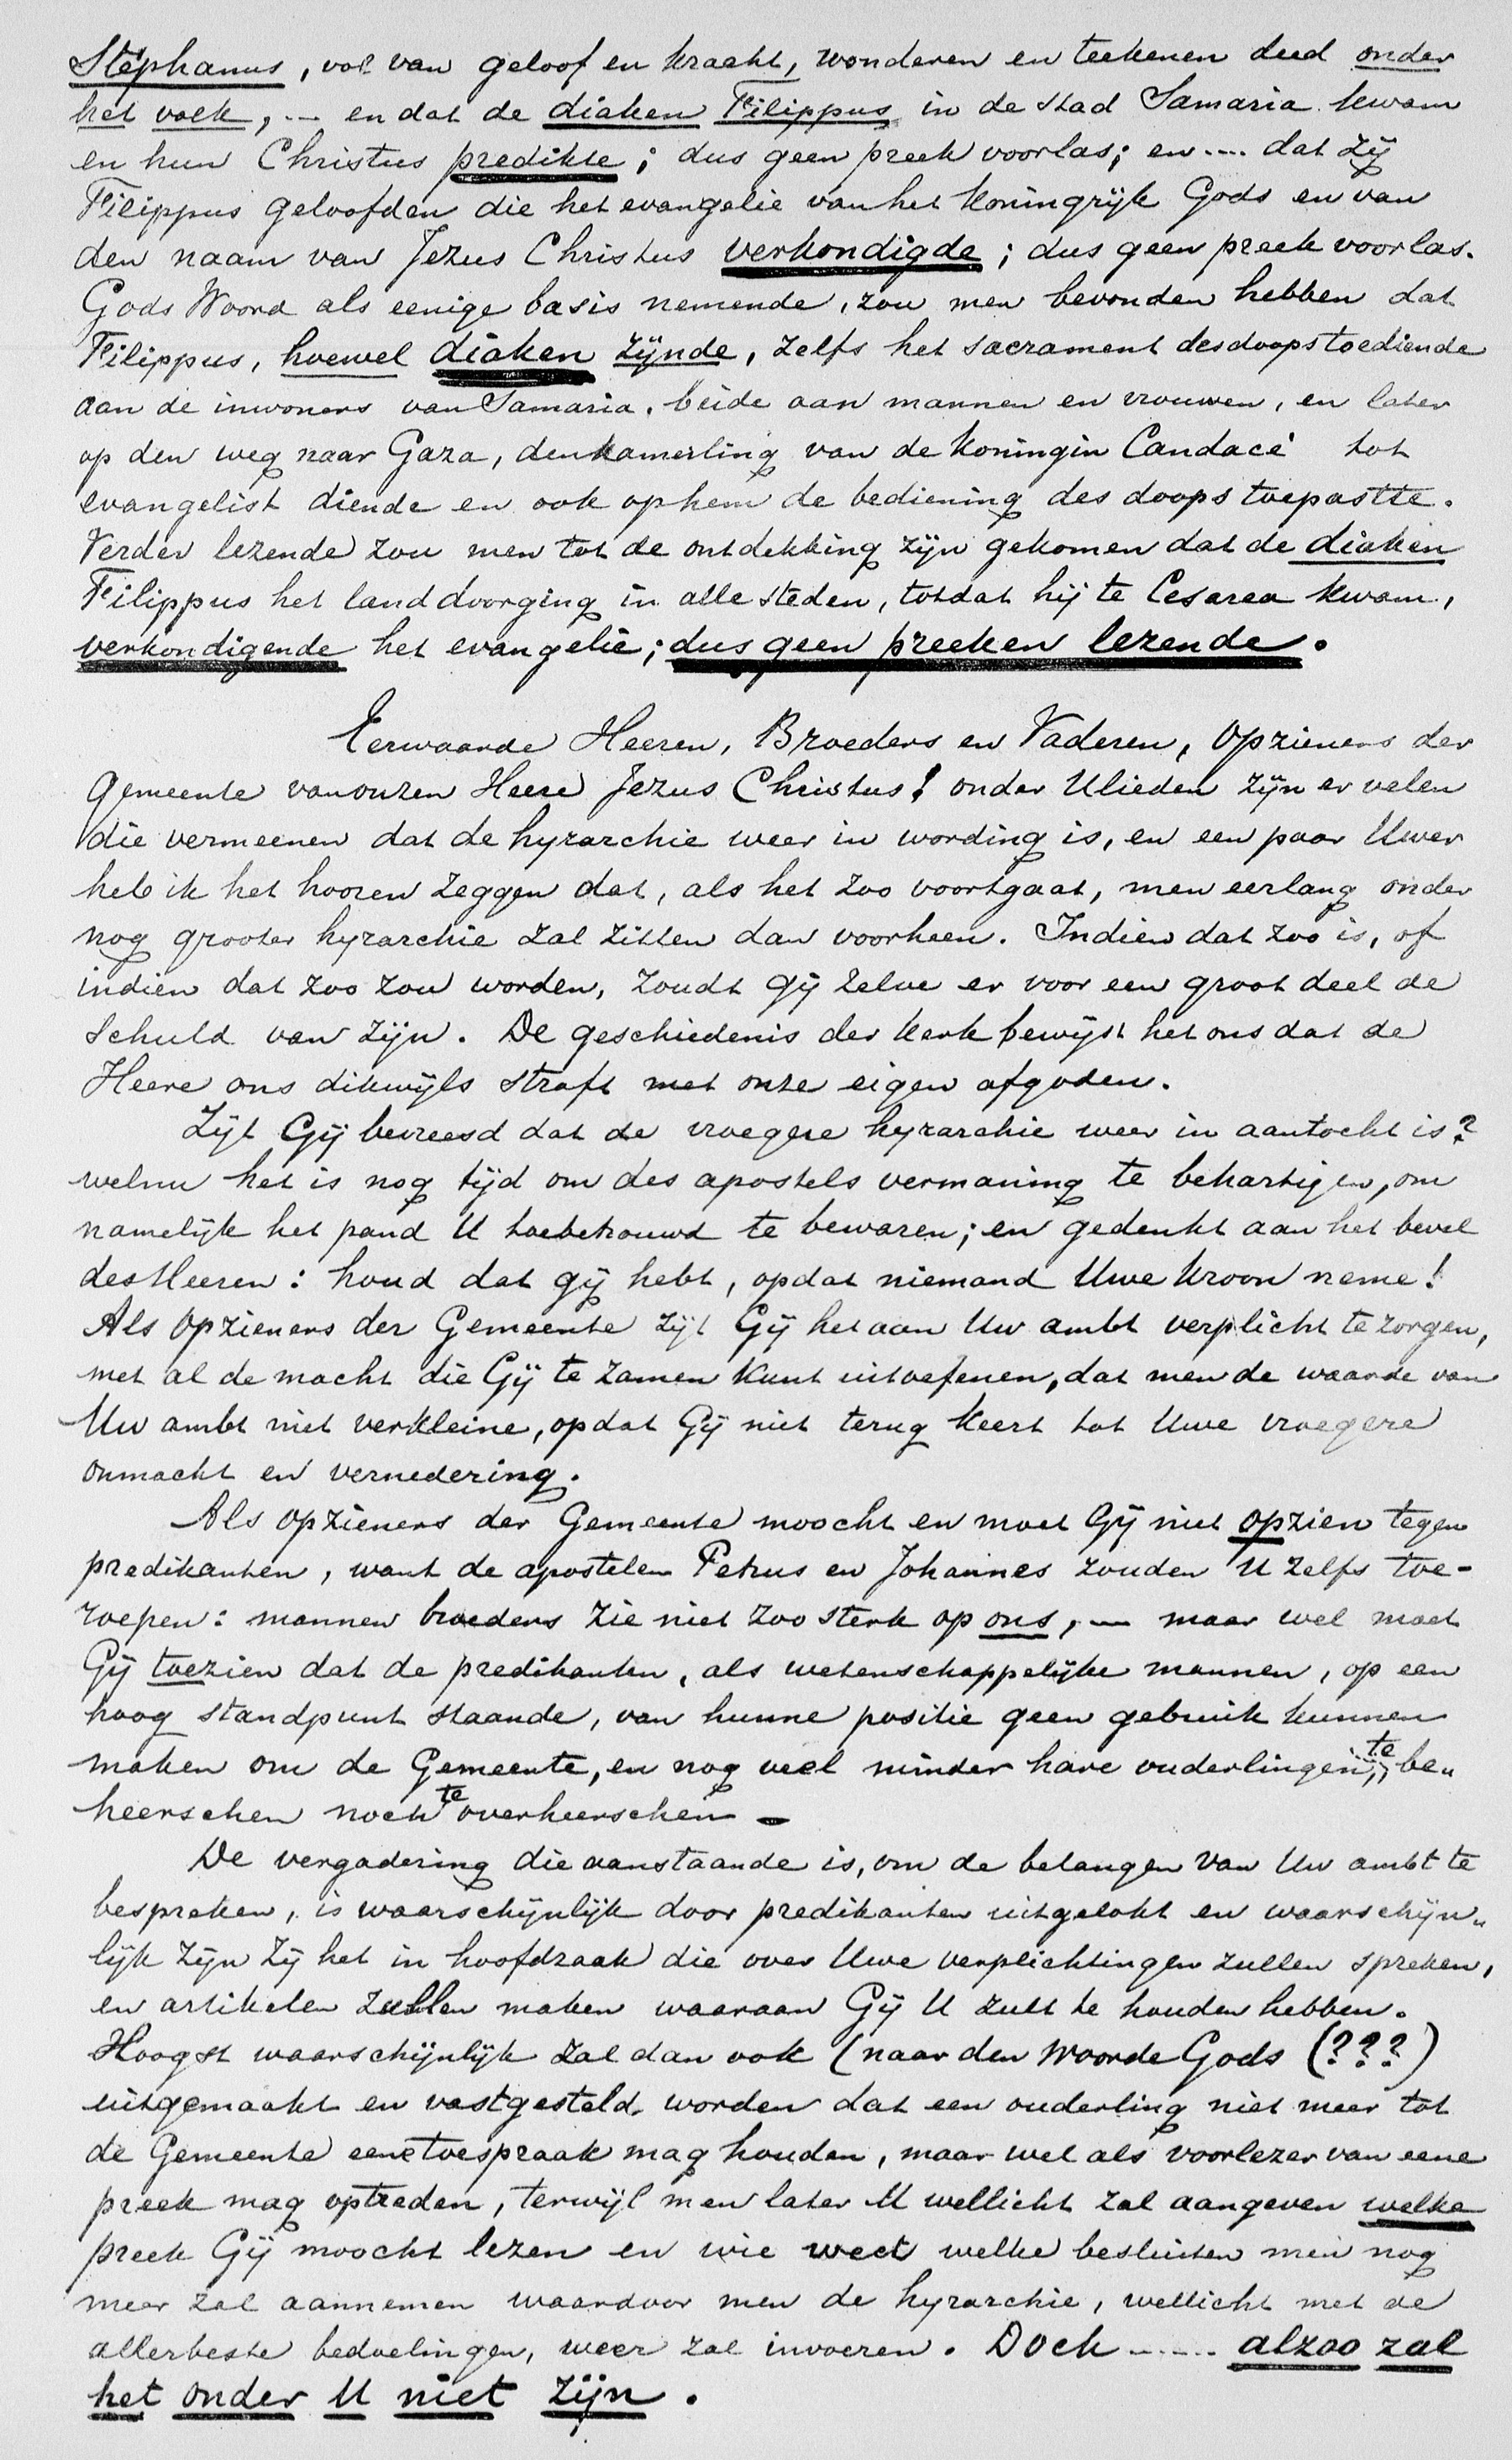 Stéphanus, vol van geloof en kracht, wonderen en teekenen deed onder
het volk, -- en dat de diaken Filippus in de stad Samaria kwam
en hun Christus predikte; dus geen preek voorlas; en .... dat zij
Filippus geloofden die het evangelie van het koningrijk Gods en van
den naam van Jezus Christus verkondigde; dus geen preek voorlas.
Gods Woord als eenige basis nemende, zou men bevonden hebben dat
Filippus, hoewel diaken zijnde, zelfs het sacrament des doops toediende
aan de inwoners van Samaria, beide aan mannen en vrouwen, en later
op den weg naar Gaza, den kamerling van de koningin Candacé tot
evangelist diende en ook op hem de bediening des doops toepastte.
Verder lezende zou men tot de ontdekking zijn gekomen dat de diaken
Filippus het land doorging in alle steden, totdat hij te Cesarea kwam,
verkondigende het evangelie; dus geen preeken lezende.
Eerwaarde Heeren, Broeders en Vaderen, Opzieners der
Gemeente van onzen Heere Jezus Christus! onder Ulieden zijn er velen
die vermeenen dat de hyrarchie weer in wording is, en een paar Uwer
heb ik het hooren zeggen dat, als het zoo voortgaat, men eerlang onder
nog grooter hyrarchie zal zitten dan voorheen. Indien dat zoo is, of
indien dat zoo zou worden, zoudt gij zelve er voor een groot deel de
schuld van zijn. De geschiedenis der kerk bewijst het ons dat de
Heere ons dikwijls straft met onze eigen afgoden.
Zijt Gij bevreesd dat de vroegere hyrarchie weer in aantocht is?
welnu het is nog tijd om des apostels vermaning te behartigen, om
namelijk het pand U toebetrouwd te bewaren; en gedenkt aan het bevel
des Heeren: houd dat gij hebt, opdat niemand Uwe kroon neme!
Als Opzieners der Gemeente zijt Gij het aan Uw ambt verplicht te zorgen,
met al de macht die Gij te zamen kunt uitoefenen, dat men de waarde van
Uw ambt niet verkleine, opdat Gij niet terug keert tot Uwe vroegere
onmacht en vernedering.
Als opzieners der Gemeente moocht en moet Gij niet opzien tegen
predikanten, want de apostelen Petrus en Johannes zouden U zelfs toe-
roepen: mannen broeders zie niet zoo sterk op ons, -- maar wel moet
Gij toezien dat de predikanten, als wetenschappelijke mannen, op een
hoog standpunt staande, van hunne positie geen gebruik kunnen
maken om de Gemeente, en nog veel minder hare ouderlingen, te be„
heerschen noch te overheerschen -
De vergadering die aanstaande is, om de belangen van Uw ambt te
bespreken, is waarschijnlijk door predikanten uitgelokt en waarschijn„
lijk zijn zij het in hoofdzaak die over Uwe verplichtingen zullen spreken,
en artikelen zullen maken waaraan Gij U zult te houden hebben.
Hoogst waarschijnlijk zal dan ook (naar den Woorde Gods (???)
uitgemaakt en vastgesteld worden dat een ouderling niet meer tot
de Gemeente eene toespraak mag houden, maar wel als voorlezer van eene
preek mag optreden, terwijl men later U wellicht zal aangeven welke
preek Gij moocht lezen en wie weet welke besluiten men nog
meer zal aannemen waardoor men de hyrarchie, wellicht met de
allerbeste bedoelingen, weer zal invoeren. Doch ..... alzoo zal
het onder U niet zijn.